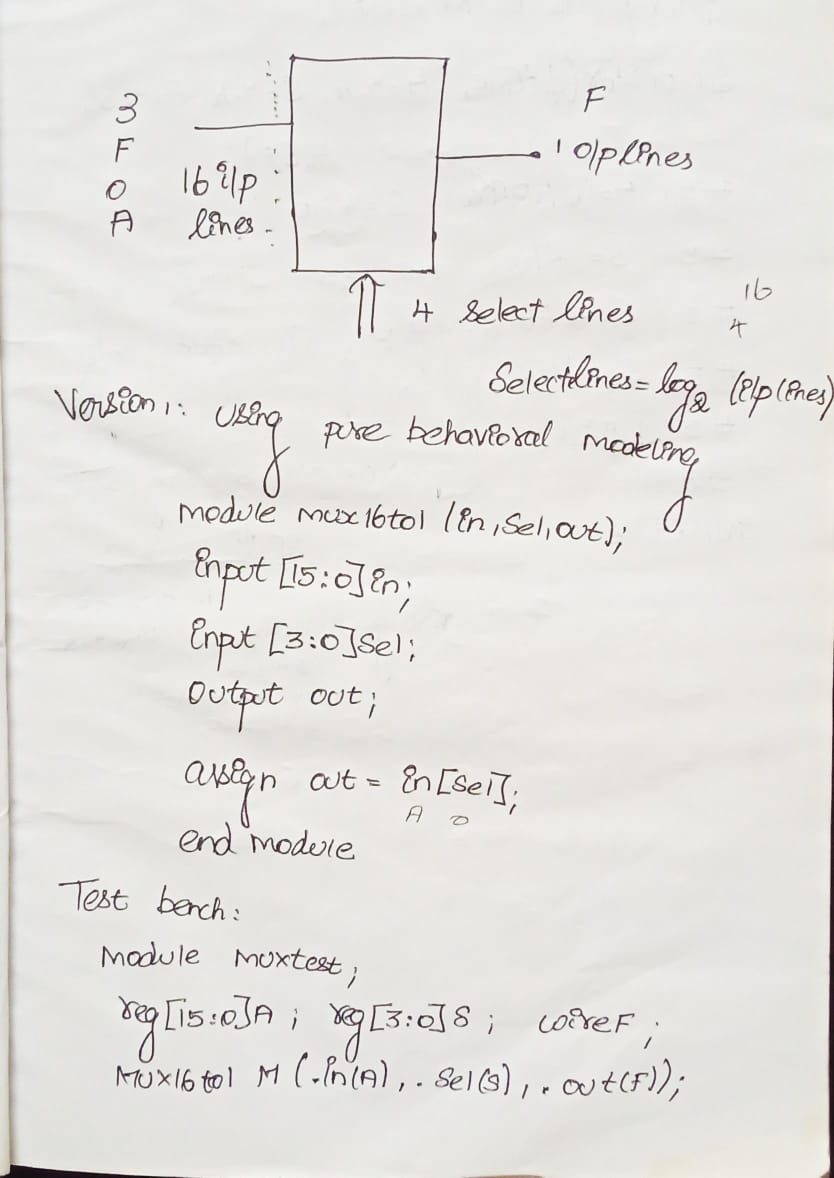 3
F
0
A
16 i/p
lines
F
1 o/p lines
4 select lines
16
4
Selectlines = log2 (i/p lines)
Version 1: using pure behavioral modeling
module mux16to1 (in, sel, out);
input [15:0] in;
input [3:0] sel;
output out;
assign out = in [sel];
A 0
end module
Test bench:
module muxtest;
reg [15:0] A ; reg [3:0] S ; wire F ;
mux16to1 M (.in(A), .sel(S), .out(F));